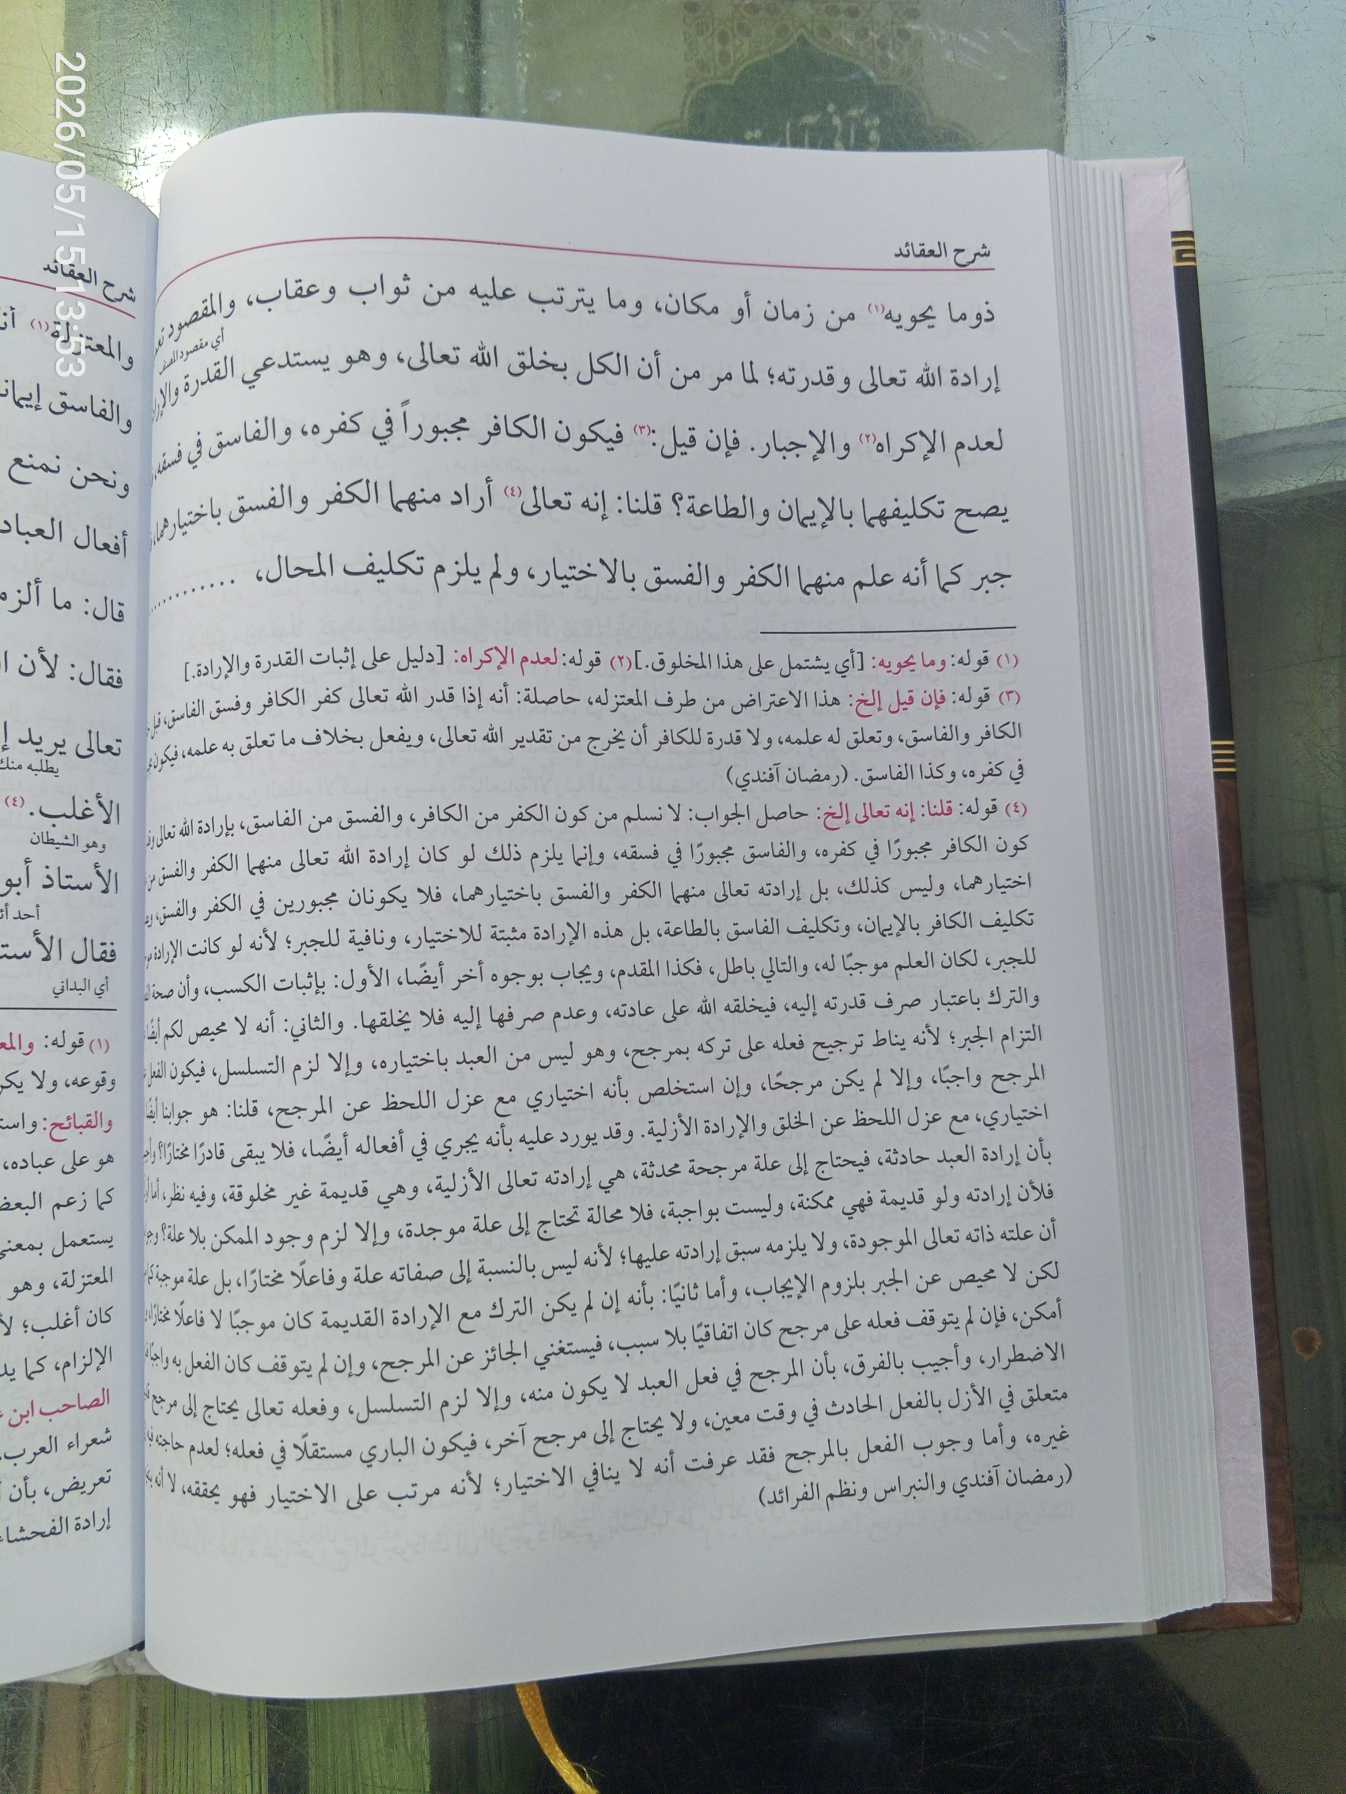 2026/05/15 13:53
قرآنی آیات
شرح العقائد
ذوما يحويه(١) من زمان أو مكان، وما يترتب عليه من ثواب وعقاب، والمقصود
أي مقصود المصنف
إرادة الله تعالى وقدرته؛ لما مر من أن الكل بخلق الله تعالى، وهو يستدعي القدرة
لعدم الإكراه(٢) والإجبار. فإن قيل:(٣) فيكون الكافر مجبوراً في كفره، والفاسق في فسقه،
يصح تكليفهما بالإيمان والطاعة؟ قلنا: إنه تعالى(٤) أراد منهما الكفر والفسق باختيارهما،
جبر كما أنه علم منهما الكفر والفسق بالاختيار، ولم يلزم تكليف المحال، ............
(١) قوله: وما يحويه: [أي يشتمل على هذا المخلوق.] (٢) قوله: لعدم الإكراه: [دليل على إثبات القدرة والإرادة.]
(٣) قوله: فإن قيل إلخ: هذا الاعتراض من طرف المعتزله، حاصلة: أنه إذا قدر الله تعالى كفر الكافر وفسق الفاسق،
الكافر والفاسق، وتعلق له علمه، ولا قدرة للكافر أن يخرج من تقدير الله تعالى، ويفعل بخلاف ما تعلق به علمه، فيكون
في كفره، وكذا الفاسق. (رمضان آفندي)
(٤) قوله: قلنا: إنه تعالى إلخ: حاصل الجواب: لا نسلم من كون الكفر من الكافر، والفسق من الفاسق، بإرادة الله تعالى
كون الكافر مجبورًا في كفره، والفاسق مجبورًا في فسقه، وإنما يلزم ذلك لو كان إرادة الله تعالى منهما الكفر والفسق
اختيارهما، وليس كذلك، بل إرادته تعالى منهما الكفر والفسق باختيارهما، فلا يكونان مجبورين في الكفر والفسق،
تكليف الكافر بالإيمان، وتكليف الفاسق بالطاعة، بل هذه الإرادة مثبتة للاختيار، ونافية للجبر؛ لأنه لو كانت الإرادة
للجبر، لكان العلم موجبًا له، والتالي باطل، فكذا المقدم، ويجاب بوجوه أخر أيضًا، الأول: بإثبات الكسب، وأن صحة
والترك باعتبار صرف قدرته إليه، فيخلقه الله على عادته، وعدم صرفها إليه فلا يخلقها. والثاني: أنه لا محيص لكم
التزام الجبر؛ لأنه يناط ترجيح فعله على تركه بمرجح، وهو ليس من العبد باختياره، وإلا لزم التسلسل، فيكون الفعل
المرجح واجبًا، وإلا لم يكن مرجحًا، وإن استخلص بأنه اختياري مع عزل اللحظ عن المرجح، قلنا: هو جوابنا
اختياري، مع عزل اللحظ عن الخلق والإرادة الأزلية. وقد يورد عليه بأنه يجري في أفعاله أيضًا، فلا يبقى قادرًا مختارًا؟
بأن إرادة العبد حادثة، فيحتاج إلى علة مرجحة محدثة، هي إرادته تعالى الأزلية، وهي قديمة غير مخلوقة، وفيه نظر،
فلأن إرادته ولو قديمة فهي ممكنة، وليست بواجبة، فلا محالة تحتاج إلى علة موجدة، وإلا لزم وجود الممكن بلا علة؟
أن علته ذاته تعالى الموجودة، ولا يلزمه سبق إرادته عليها؛ لأنه ليس بالنسبة إلى صفاته علة وفاعلًا مختارًا، بل علة موجبة
لكن لا محيص عن الجبر بلزوم الإيجاب، وأما ثانيًا: بأنه إن لم يكن الترك مع الإرادة القديمة كان موجبًا لا فاعلًا
أمكن، فإن لم يتوقف فعله على مرجح كان اتفاقيًا بلا سبب، فيستغني الجائز عن المرجح، وإن لم يتوقف كان الفعل به
الاضطرار، وأجيب بالفرق، بأن المرجح في فعل العبد لا يكون منه، وإلا لزم التسلسل، وفعله تعالى يحتاج إلى مرجح
متعلق في الأزل بالفعل الحادث في وقت معين، ولا يحتاج إلى مرجح آخر، فيكون الباري مستقلًا في فعله؛ لعدم حاجته
غيره، وأما وجوب الفعل بالمرجح فقد عرفت أنه لا ينافي الاختيار؛ لأنه مرتب على الاختيار فهو يحققه، لا أنه
(رمضان آفندي والنبراس ونظم الفرائد)
شرح العقائد
والمعتزلة(١)
والفاسق
ونحن نمنع
أفعال العباد
قال: ما
فقال: لأن
تعالى يريد
يطلبه منك
الأغلب.(٤)
وهو الشيطان
الأستاذ أبو
أحد
فقال
أي البداني
(١) قوله:
وقوعه، ولا
والقبائح:
هو على عباده،
كما زعم
يستعمل بمعنى
المعتزلة، وهو
كان أغلب؛
الإلزام، كما
الصاحب ابن
شعراء العرب
تعريض، بأن
إرادة الفحشاء